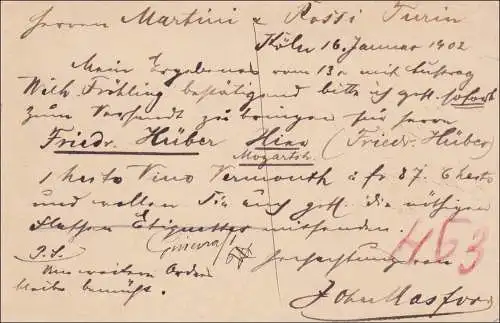 Herren Martini & Rossi Turin
Köln 16. Januar 1902
Mein Ergebenes vom 13n mit Auftrag
Wilh. Fröhling bestätigend bitte ich gefl. sofort
zum Versandt zu bringen für Herrn
Friedr. Hüber Hier (Friedr. Hüber)
Mozartstr.
1 hecto Vino Vermouth à fr 87. % hecto
und wollen Sie auch gefl. die nöthigen
Flaschen Etiquetten mitsenden.
P.S.
Um weitere Orders
bleibe bemüht.
Hochachtungsvoll
453